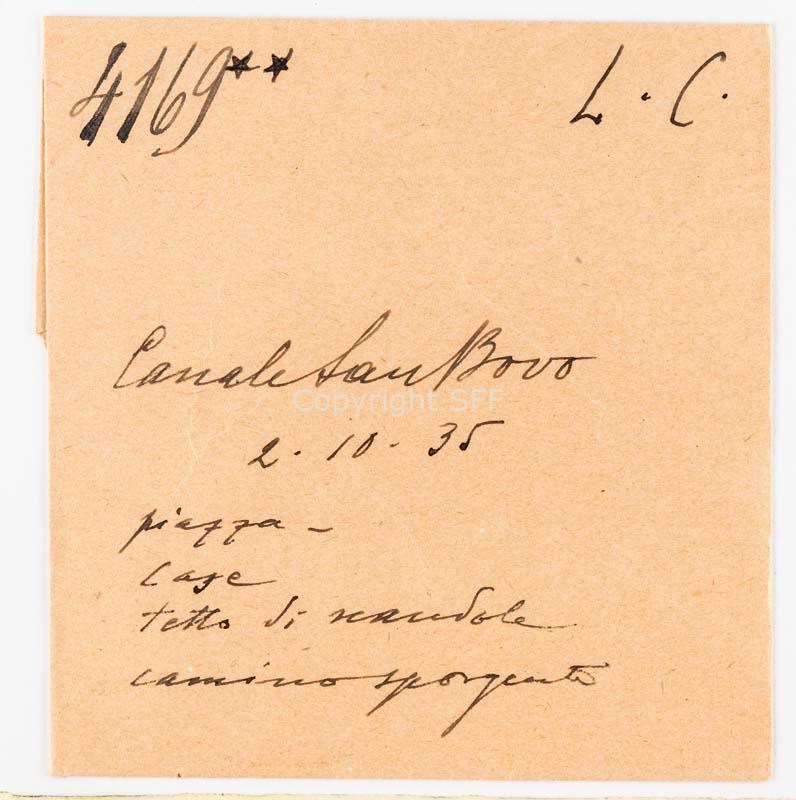 4169** L. C.
Canale San Bovo
Copyright SFF
2. 10. 35
piazza -
case
tetto di scandole
camino sporgente